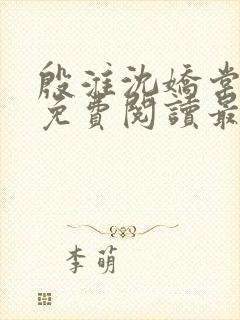 殷淮沈嬌
免費閱讀最
李萌